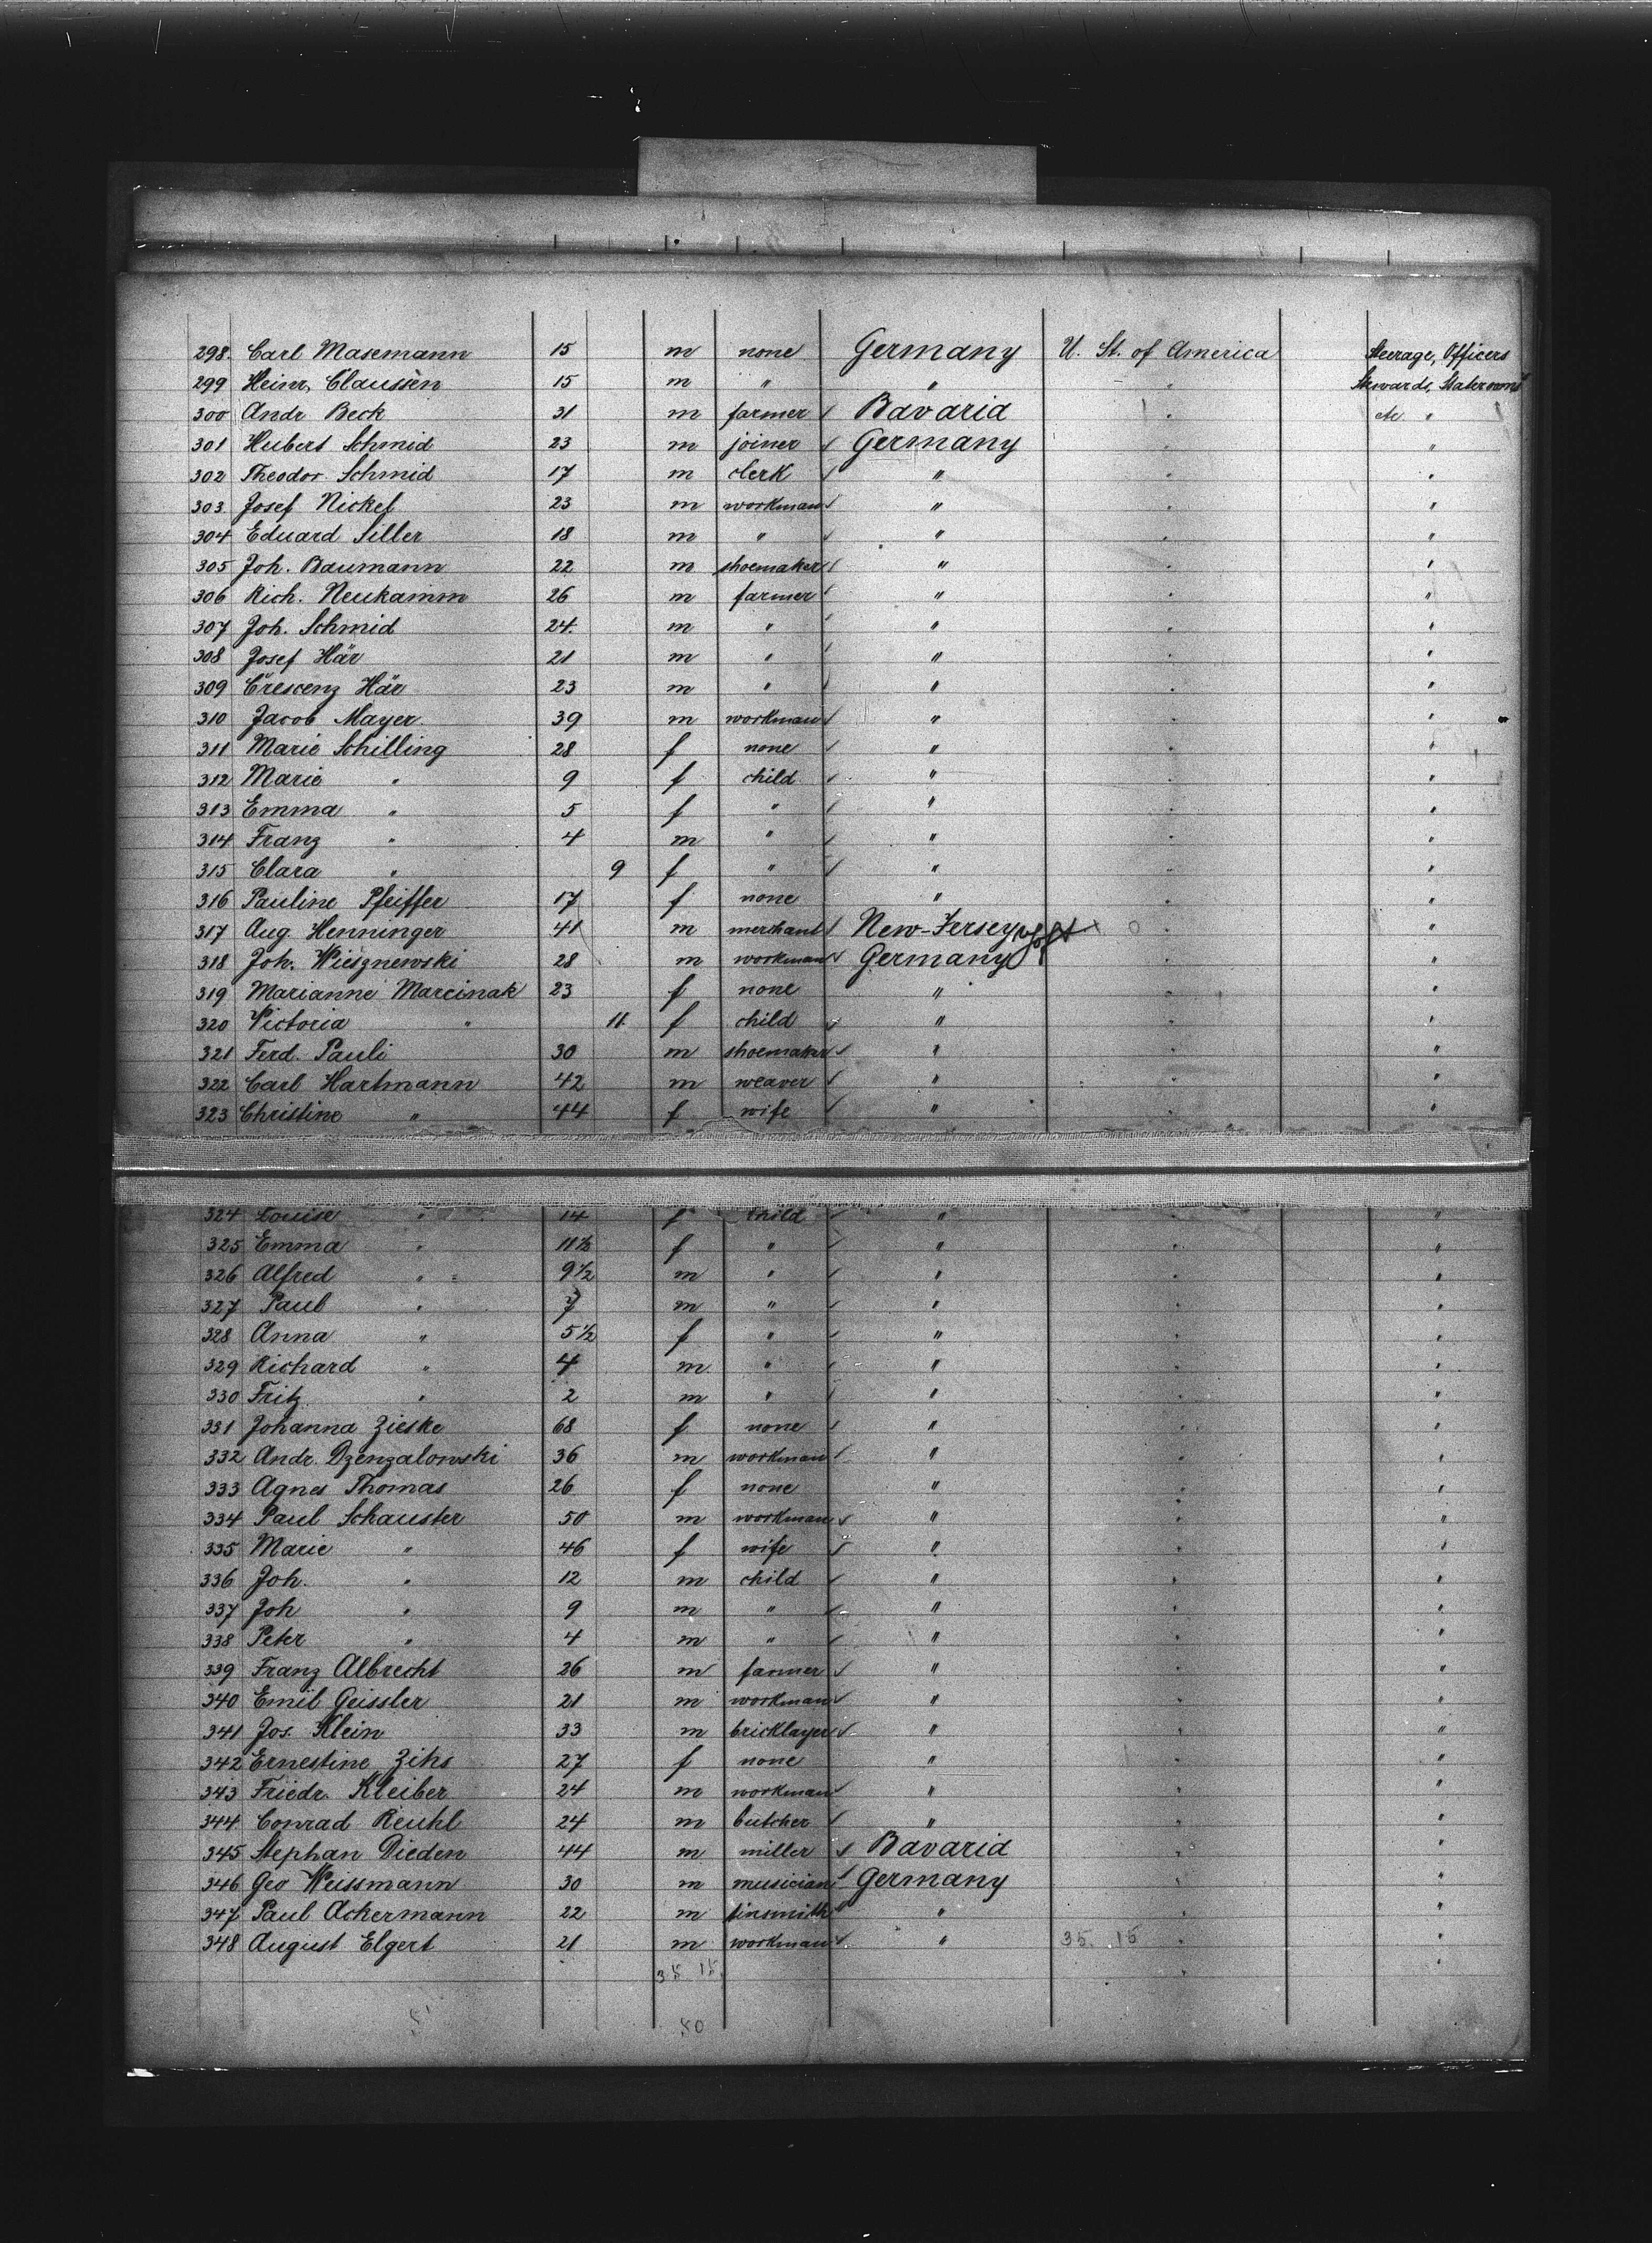 298. Carl Masemann 15 m none Germany U. St. of America Steerage, Officers
299 Heinr. Claussen 15 m " " " Stewards, Staterooms
300 Andr Beck 31 m farmer Bavaria " etc. "
301 Hubert Schmid 23 m joiner Germany " "
302 Theodor Schmid 17 m clerk " " "
303. Josef Nickel 23 m workman " " "
304 Eduard Siller 18 m " " " "
305 Joh. Baumann 22 m shoemaker " " "
306 Rich. Neukamm 26 m farmer " " "
307 Joh. Schmid 24. m " " " "
308 Josef Här 21 m " " " "
309 Crescenz Här 23 m " " " "
310 Jacob Mayer 39 m workman " " "
311 Marie Schilling 28 f none " " "
312 Marie " 9 f child " " "
313 Emma " 5 f " " " "
314 Franz " 4 m " " " "
315 Clara " 9 f " " " "
316 Pauline Pfeiffer 17 f none " " "
317 Aug. Henninger 41 m merchant New-Jersey " "
318 Joh. Wiesznewski 28 m workman Germany " "
319 Marianne Marcinak 23 f none " " "
320 Victoria " 11 f child " " "
321 Ferd. Pauli 30 m shoemaker " " "
322 Carl Hartmann 42 m weaver " " "
323 Christine " 44 f wife " " "
324 Louise " 14 f child " " "
325 Emma " 11½ f " " " "
326 Alfred " 9½ m " " " "
327 Paul " 7 m " " " "
328 Anna " 5½ f " " " "
329 Richard " 4 m " " " "
330 Fritz " 2 m " " " "
331 Johanna Zieske 68 f none " " "
332 Andr. Dzenzalowski 36 m workman " " "
333 Agnes Thomas 26 f none " " "
334 Paul Schauster 50 m workman " " "
335 Marie " 46 f wife " " "
336 Joh. " 12 m child " " "
337 Joh " 9 m " " " "
338 Peter " 4 m " " " "
339 Franz Albrecht 26 m farmer " " "
340 Emil Geissler 21 m workman " " "
341 Jos. Klein 33 m bricklayer " " "
342 Ernestine Zihs 27 f none " " "
343 Friedr. Kleiber 24 m workman " " "
344 Conrad Reuhl 24 m butcher " " "
345 Stephan Dieden 44 m miller Bavaria " "
346 Geo Weissmann 30 m musician Germany " "
347 Paul Ackermann 22 m tinsmith " " "
348 August Elgert 21 m workman " 35. 15 " "
35 15.
50